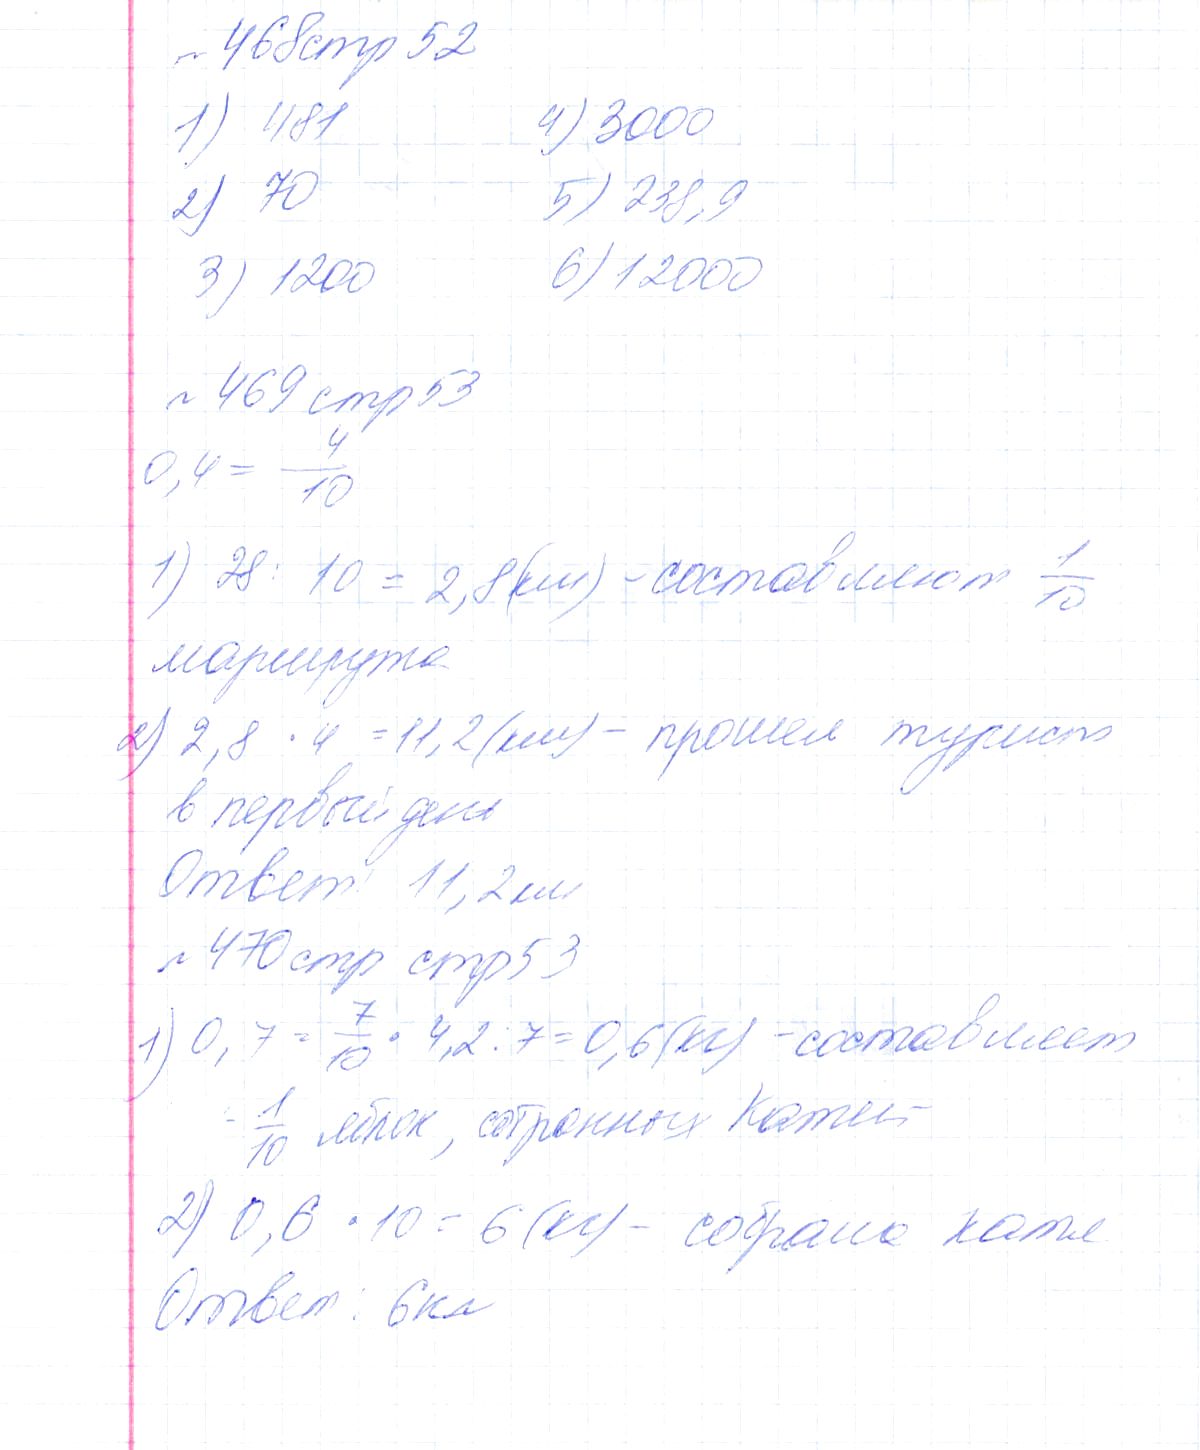 ~ 468 стр 52
1) 481 4) 3000
2) 70 5) 238,9
3) 1200 6) 12000
~ 469 стр 53
0,4 = 4/10
1) 28 : 10 = 2,8 (км) - составляют 1/10
маршрута
2) 2,8 · 4 = 11,2 (км) - прошел турист
в первый день
Ответ: 11,2 км
~ 470 стр стр 53
1) 0,7 = 7/10 · 4,2 : 7 = 0,6 (кг) - составляет
- 1/10 яблок, собранных Катей
2) 0,6 · 10 = 6 (кг) - собрала Катя
Ответ: 6 кг